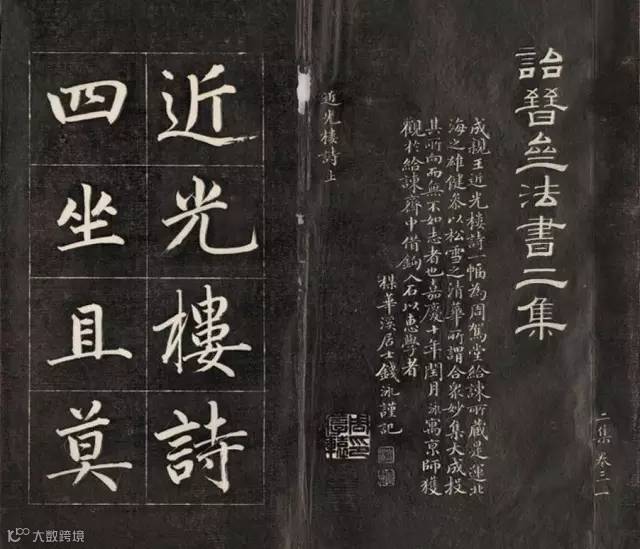 二集 卷三 一
詒晉亝法書二集
成親王近光樓詩一幅為周駕堂給諫所藏是運北
海之雄健參以松雪之清華所謂合眾妙集大成投
其所向而無不如志者也嘉慶十年閏月泳寓京師獲
觀於給諫齋中借鉤入石以惠學者
楳華溪居士錢泳謹記
近光樓詩上
近光樓詩
四坐且莫
大数跨境